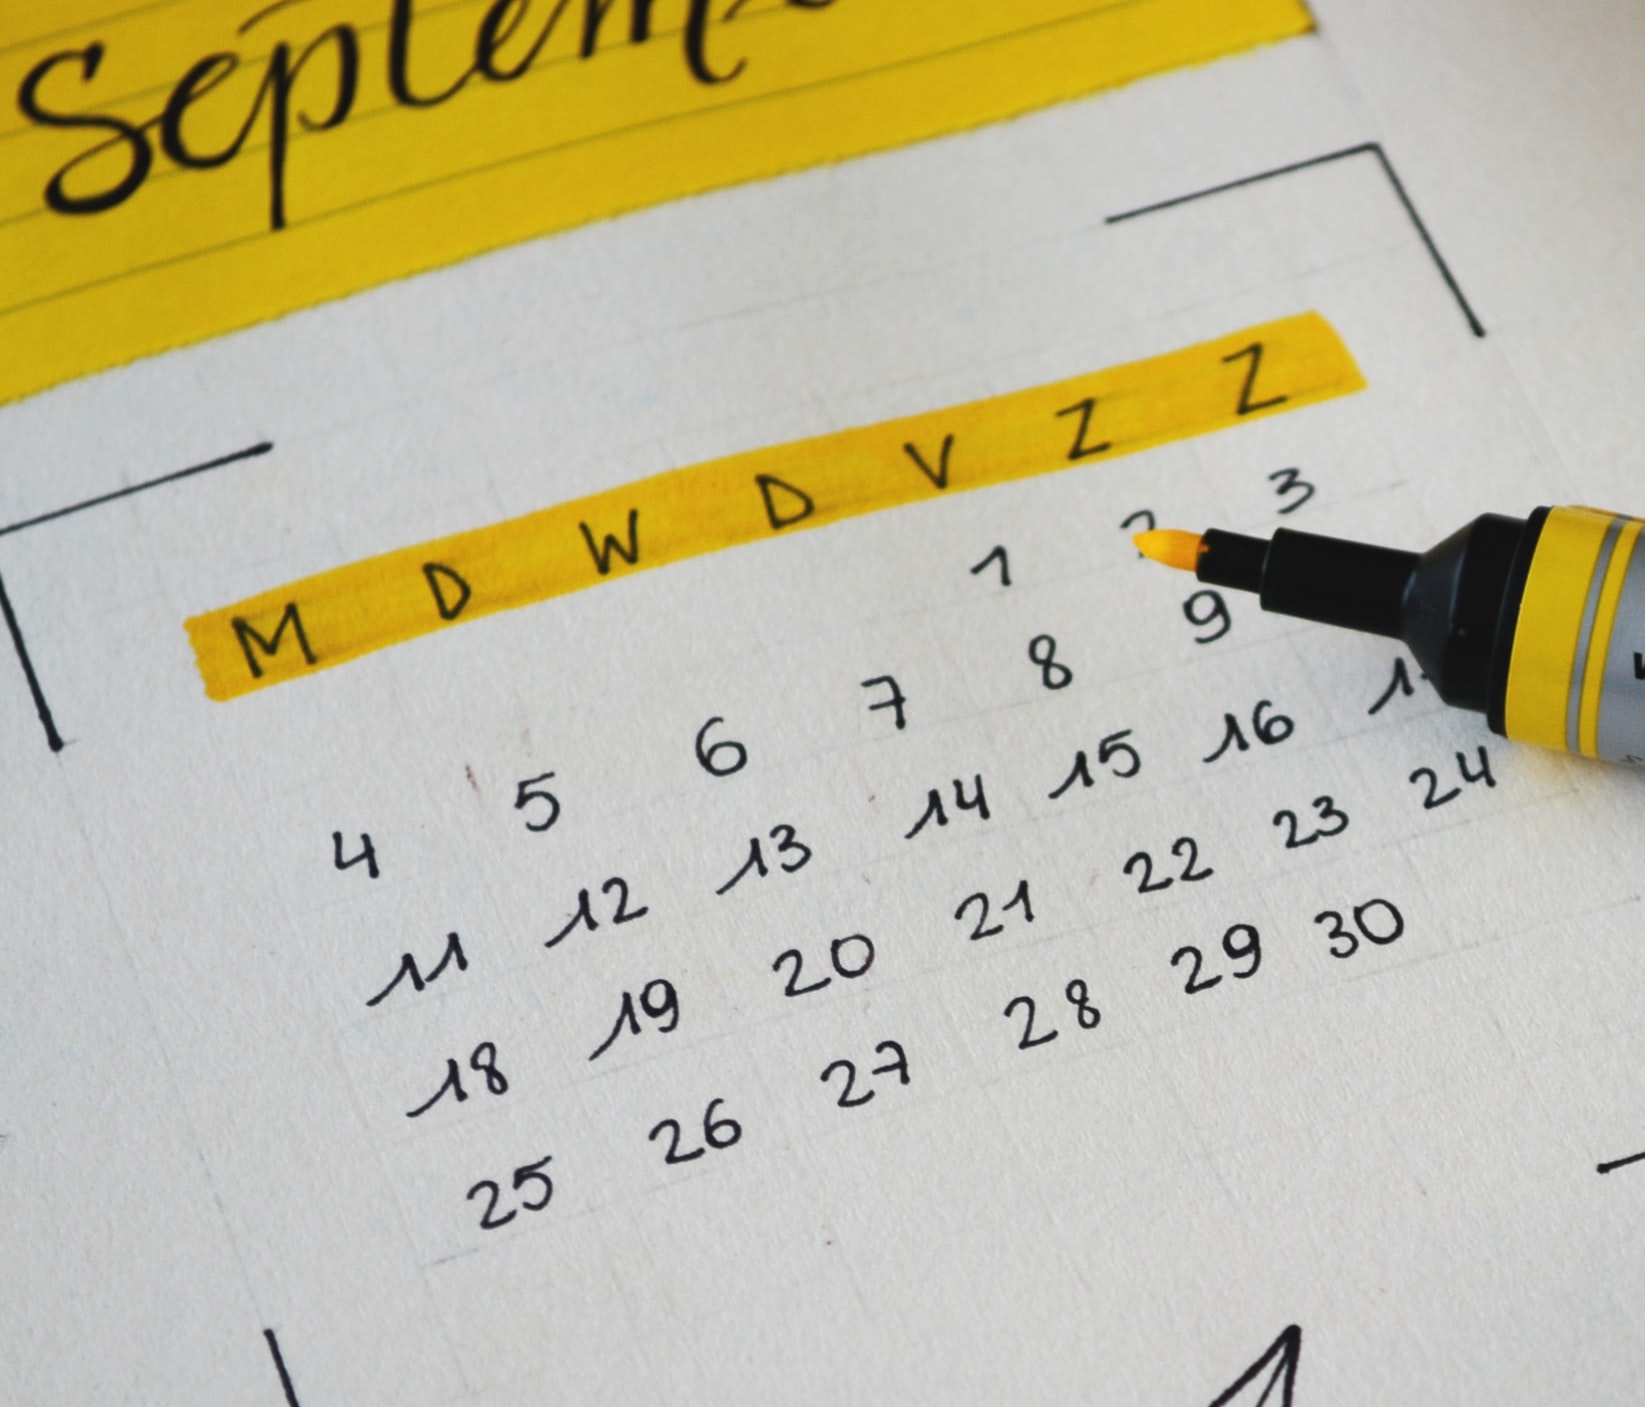 Septem
M D W D V Z Z
1 2 3
4 5 6 7 8 9
11 12 13 14 15 16
18 19 20 21 22 23 24
25 26 27 28 29 30